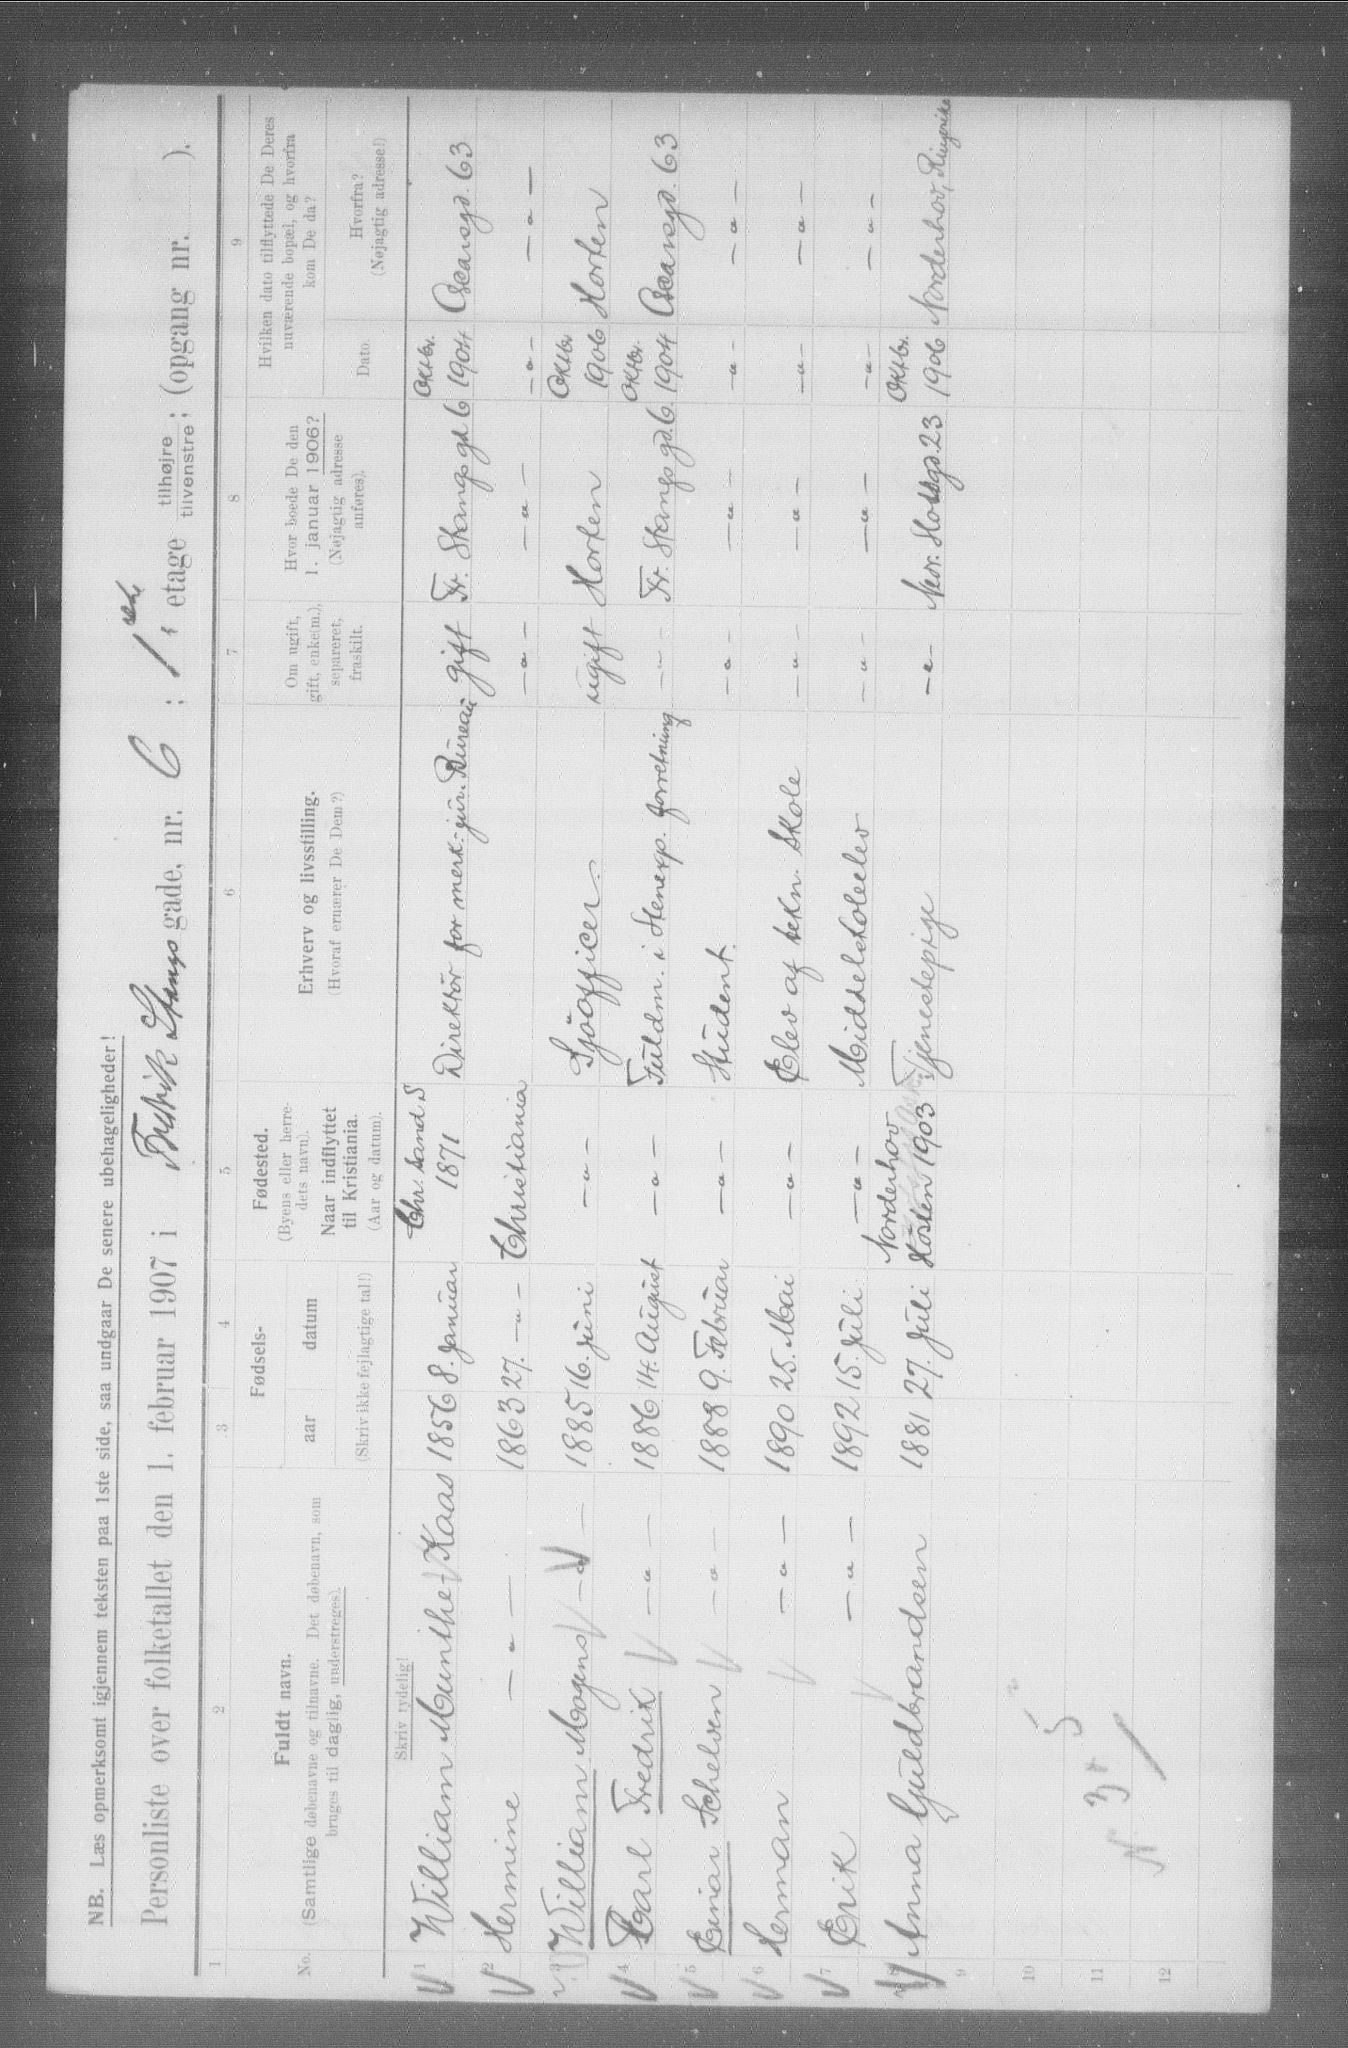 NB. Læs opmerksomt igjennem teksten paa 1ste side, saa undgaar De senere ubehageligheder!
Personliste over folketallet den 1. februar 1907 i Fredrik Stangs gade, nr. 6 ; 1ste etage tilhøjre tilvenstre ; (opgang nr. ).
1 2 3 4 5 6 7 8 9
No. Fuldt navn. (Samtlige døbenavne og tilnavne. Det døbenavn, som bruges til daglig, understreges).
Fødsels- aar datum (Skriv ikke fejlagtige tal!)
Fødested. (Byens eller herredets navn). Naar indflyttet til Kristiania. (Aar og datum).
Erhverv og livsstilling. (Hvoraf ernærer De Dem?)
Om ugift, gift, enke(m.), separeret, fraskilt.
Hvor boede De den 1. januar 1906? (Nøjagtig adresse anføres).
Hvilken dato tilflyttede De Deres nuværende bopæl, og hvorfra kom De da?
Dato. Hvorfra? (Nøjagtig adresse!)
Skriv tydelig!
1 William Munthe-Kaas 1856 8. Januar Chr.sand S 1871 Direktör for merk.-jur. Büreaü gift Fr. Stangs gd 6 Oktbr. 1904 Oscarsgd. 63
2 Hermine —„— 1863 27. —„— Christiania —„— —„— —„— —„—
3 William Mogens —„— 1885 16. Jüni —„— Sjöofficer. ugift Horten Oktbr. 1906 Horten
4 Carl Fredrik —„— 1886 14. Aügüst —„— Füldm. i Stenexp. forretning —„— Fr. Stangs gd. 6. Oktbr. 1904 Oscarsgd. 63
5 Einar Schelven —„— 1888 9. Febrüar —„— Stüdent. —„— —„— —„— —„—
6 Herman —„— 1890 25. Mai —„— Elev af tekn. Skole —„— —„— —„— —„—
7 Erik —„— 1892 15. Jüli —„— Middelskoleelev —„— —„— —„— —„—
8 Anna Güldbrandsen 1881 27. Jüli Norderhov Hösten 1903 Tjenestepige —„— Nor. 23 Oktbr. 1906 Norderhov, Ringerike
9
10
11
12
N 3 + 5